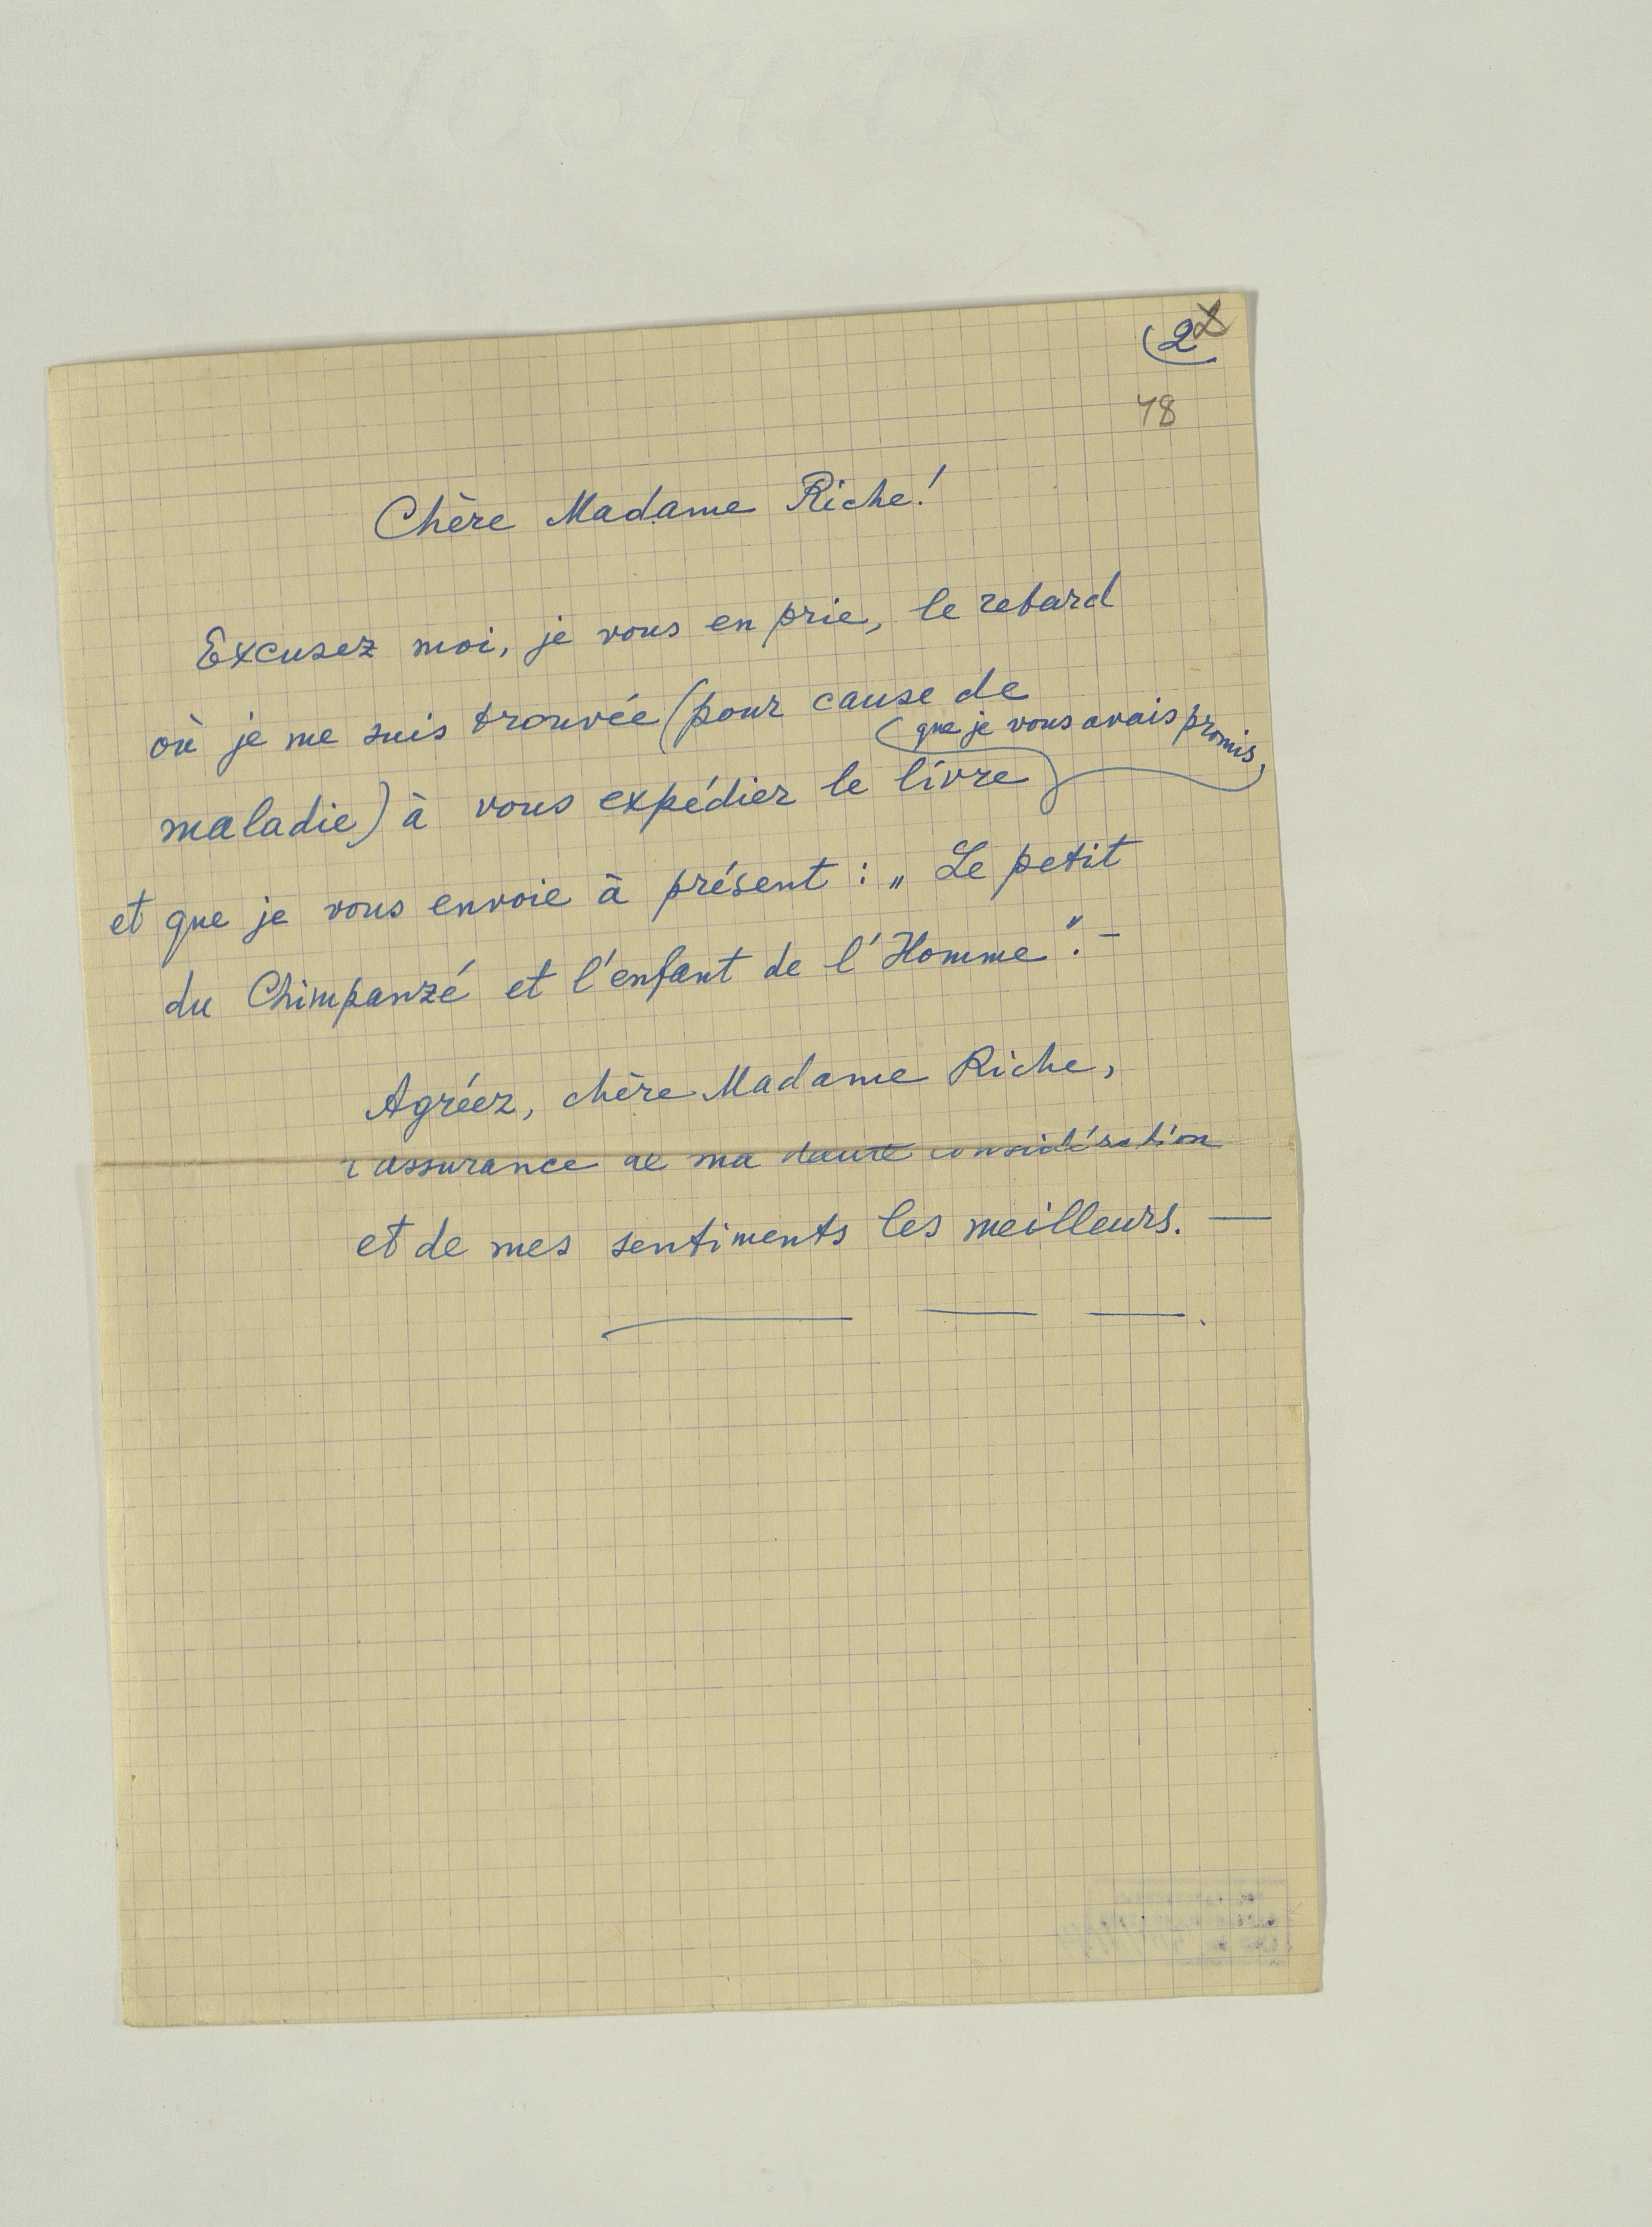 2
78
Chère Madame Riche!
Excusez moi, je vous en prie, le retard
où je me suis trouvée (pour cause de
que je vous avais promis,
maladie) à vous expédier le livre
et que je vous envoie à présent : „ Le petit
du Chimpanzé et l'enfant de l'Homme". –
Agréez, chère Madame Riche,
l'assurance de ma haute considération
et de mes sentiments les meilleurs. —